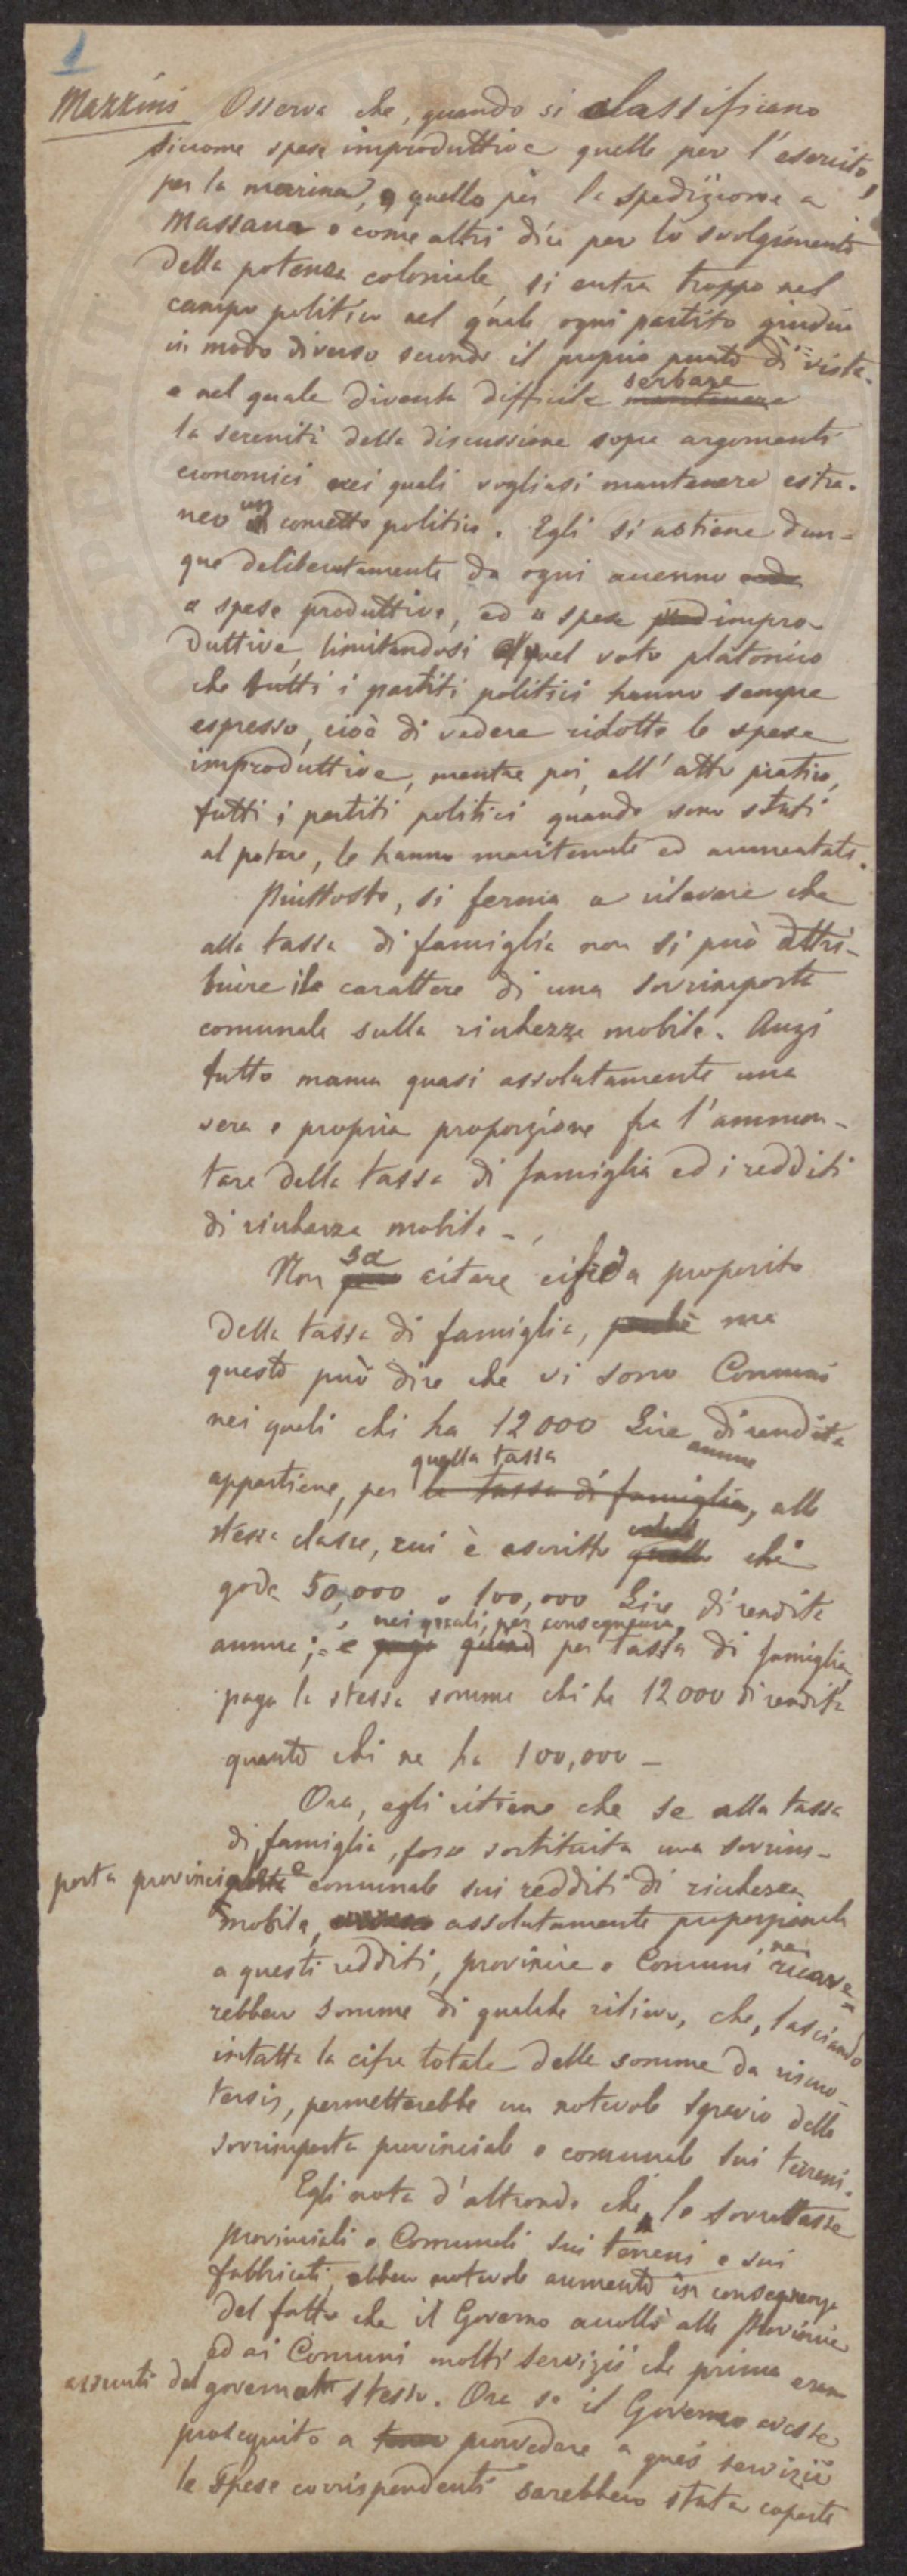 1
Mazzini Osserva che, quando si classificano
siccome spese improduttive quelle per l'esercito,
per la marina, e quelle per la spedizione a
Massaua o come altri dice per lo svolgimento
della potenza coloniale, si entra troppo nel
campo politico nel quale ogni partito giudica
in modo diverso secondo il proprio punto di vista
e nel quale diventa difficile mantenere serbare
la serenità della discussione sopra argomenti
economici nei quali vogliasi mantenere estra-
neo un concetto politico. Egli si astiene dun-
que deliberatamente da ogni accenno
a spese produttive, ed a spese impro-
duttive, limitandosi a quel voto platonico
che tutti i partiti politici hanno sempre
espresso, cioè di vedere ridotte le spese
improduttive, mentre poi, all'atto pratico,
tutti i partiti politici quando sono stati
al potere, le hanno mantenute ed aumentate.
Piuttosto, si ferma a rilevare che
alla tassa di famiglia non si può attri-
buire il carattere di una sovrimposta
comunale sulla ricchezza mobile. Anzi
tutto manca quasi assolutamente una
vera e propria proporzione fra l'ammon-
tare della tassa di famiglia ed i redditi
di ricchezza mobile -
Non sa citare cifre a proposito
della tassa di famiglia, perchè ma
questo può dire che vi sono Comuni
nei quali chi ha 12000 Lire di rendita
annue
appartiene, per quella tassa la tassa di famiglia, alla
stessa classe, cui è ascritto quello che
gode 50,000 o 100,000 Lire di rendita
annue; e nei quali, per conseguenza, paga quindi per tassa di famiglia
paga la stessa somma chi ha 12000 di rendita
quanto chi ne ha 100,000 -
Ora, egli ritiene che se alla tassa
di famiglia, fosse sostituita una sovrim-
posta provinciale e comunale sui redditi di ricchezza
mobile, assolutamente proporzionale
a questi redditi, provincie e Comuni ne ricave-
rebbero somme di qualche rilievo, che, lasciando
intatta la cifra totale delle somme da riscuo-
tersi, permetterebbe un notevole sgravio della
sovrimposta provinciale e comunale sui terreni.
Egli nota d'altronde che le sovrattasse
provinciali e Comunali sui terreni e sui
fabbricati ebbero notevole aumento in conseguenza
del fatto che il Governo accollò alle Provincie
ed ai Comuni molti servizii che prima erano
assunti dal governo stesso. Ora se il Governo avesse
proseguito a provvedere a quei servizii
le spese corrispondenti sarebbero state coperte